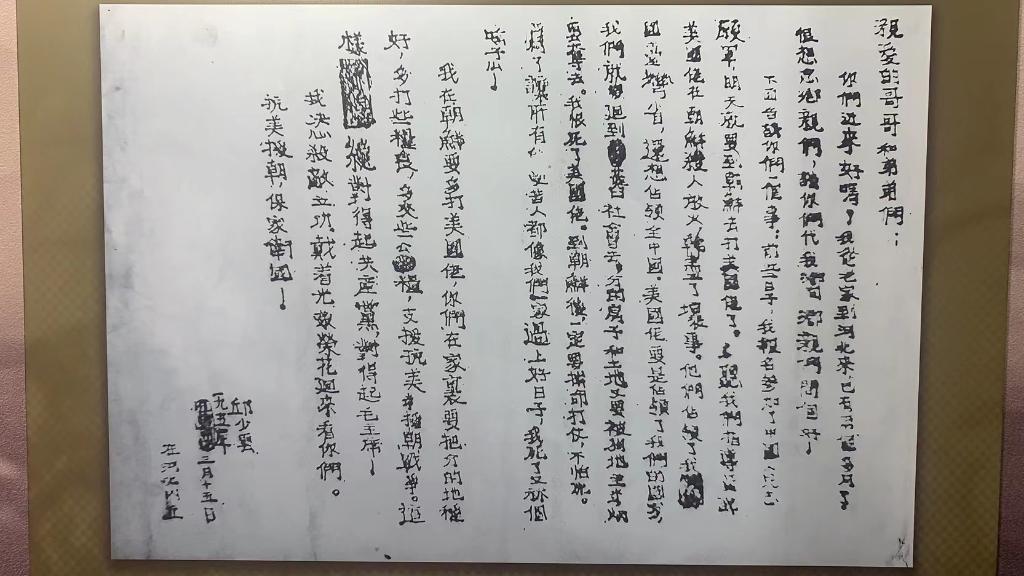 親愛的哥哥和弟弟們：
你們近來好嗎？我從老家到河北來已有
但想念鄉親們，請你們代我
下面告訴你們一個事：前三日子，我報名參加了中國人民志
願軍，明天就要到朝鮮去打美國佬了。
美國佬在朝鮮殺人放火，幹盡了壞事。他們佔領了我
國臺灣省，還想佔領全中國。美國佬要是佔領了我們的國家，
我們就得迴到舊社會去，分的房子和土地又要被地主
奪去。我恨死了美國佬。到朝鮮後一定要勇敢打仗，不怕死。
爲了讓所有的受苦人都像我們一家過上好日子，我死了又祘個
啥子么！
我在朝鮮要多打美國佬，你們在家裏要把分的地種
好，多打些糧食，多交些公糧，支援抗美援朝戰爭。這
樣，纔對得起共產黨，對得起毛主席！
我決心殺敵立功，戴着光榮花迴來看你們。
抗美援朝，保家衛國！
邱少雲
一九五 年
二月十五日
在河北内丘